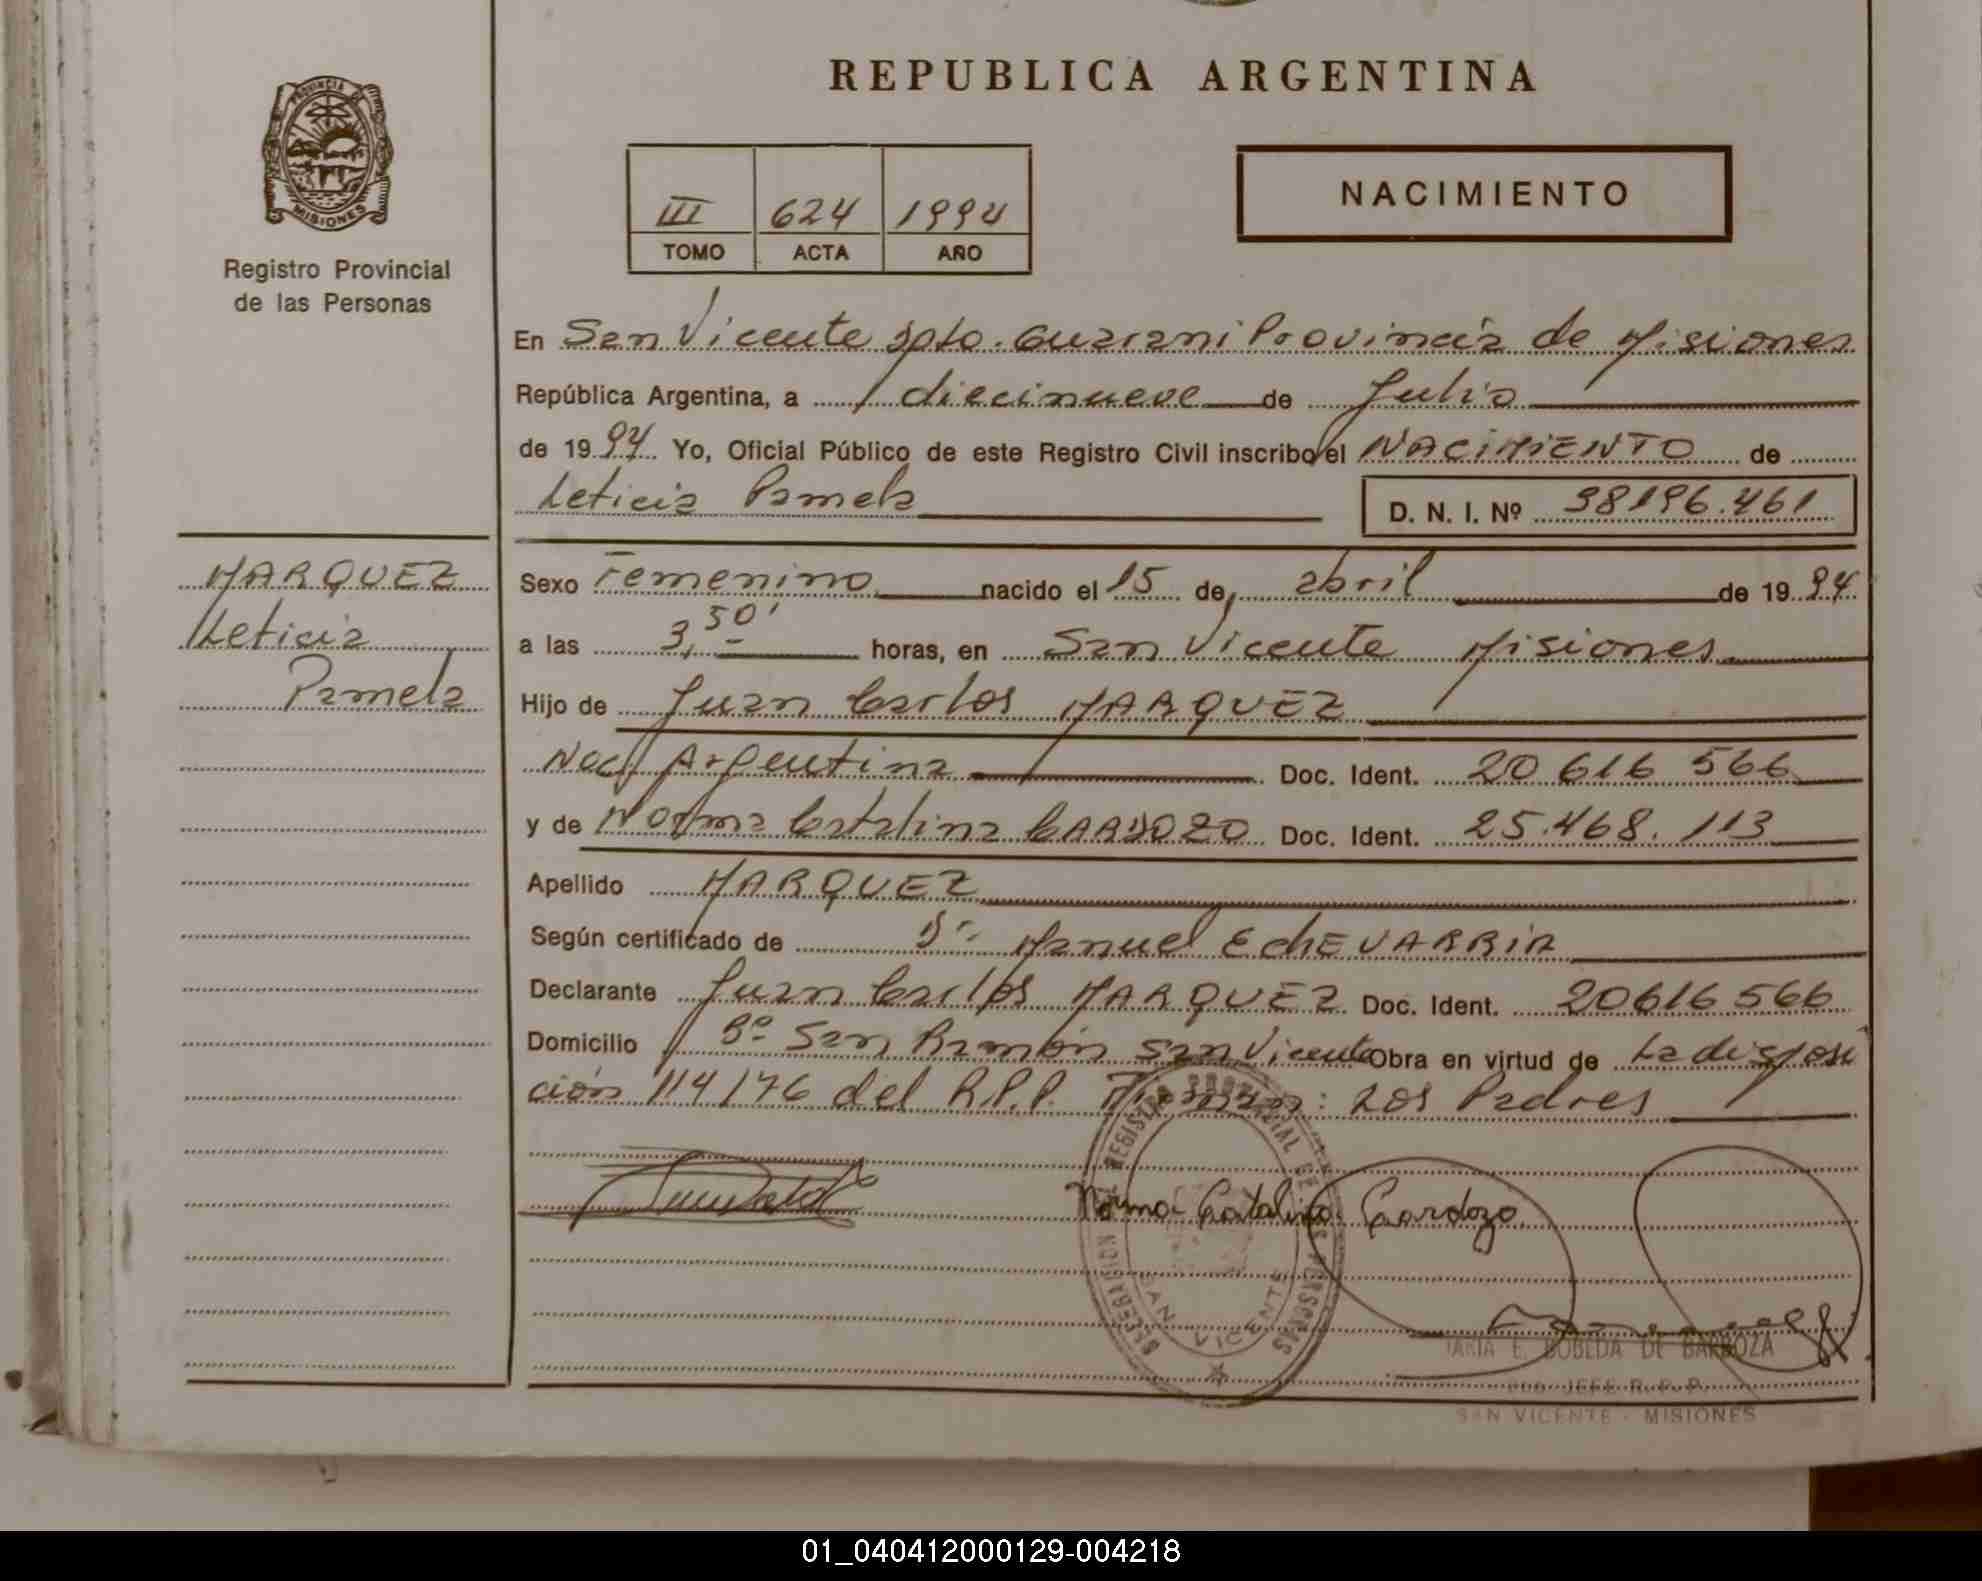 REPUBLICA ARGENTINA
PROVINCIA DE MISIONES
Registro Provincial
de las Personas
III 624 1994
TOMO ACTA AÑO
NACIMIENTO
En San Vicente Dpto. Guarani Provincia de Misiones
República Argentina, a diecinueve de Julio
de 1994 Yo, Oficial Público de este Registro Civil inscribo el NACIMIENTO de
Leticia Pamela D. N. I. Nº 38196.461
MARQUEZ
Leticia
Pamela
Sexo Femenino nacido el 15 de abril de 1994
a las 3,50' horas, en San Vicente Misiones
Hijo de Juan Carlos MARQUEZ
Nac. Argentina Doc. Ident. 20 616 566
y de Norma Catalina CARDOZO Doc. Ident. 25.468.113
Apellido MARQUEZ
Según certificado de Dr. Manuel EchEVARRIA
Declarante Juan Carlos MARQUEZ Doc. Ident. 20616566
Domicilio Bº San Ramón San Vicente Obra en virtud de La disposi
ción 114/76 del R.P.P. Firman: Los Padres
Norma Catalina Cardozo
REGISTRO PROVINCIAL DE LAS PERSONAS
SAN VICENTE
MARIA E. BOBEDA DE BARBOZA
JEFE R. P. P.
SAN VICENTE - MISIONES
01_040412000129-004218